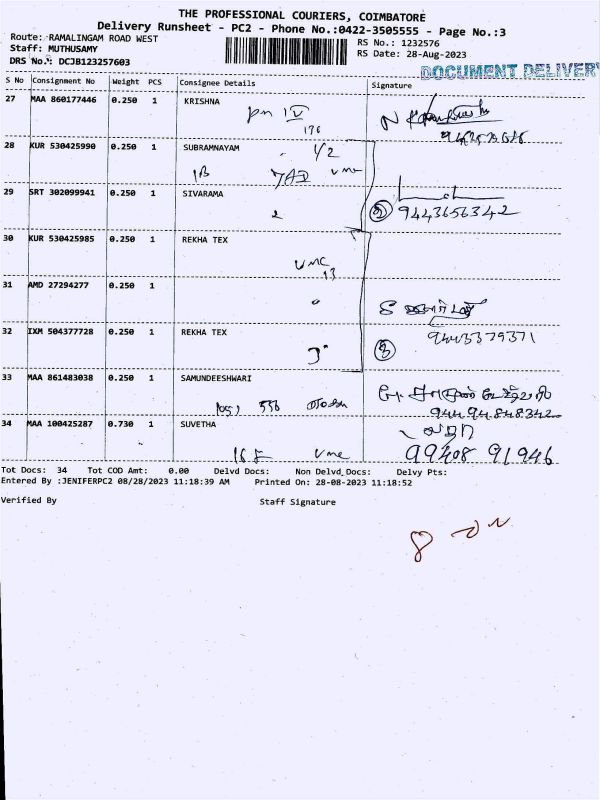 THE PROFESSIONAL COURIERS, COIMBATORE
Delivery Runsheet - PC2 - Phone No.:0422-3505555 - Page No.:3
Route: RAMALINGAM ROAD WEST
RS No.: 1232576
Staff: MUTHUSAMY
RS Date: 28-Aug-2023
DRS No.: DCJB123257603
DOCUMENT DELIVERY
S No Consignment No Weight PCS Consignee Details Signature
27 MAA 860177446 0.250 1 KRISHNA
176
28 KUR 530425990 0.250 1 SUBRAMNAYAM
1/2
1B 7AD vmc
29 SRT 302099941 0.250 1 SIVARAMA
2 9443656342
30 KUR 530425985 0.250 1 REKHA TEX
VMC
13
31 AMD 27294277 0.250 1
32 IXM 504377728 0.250 1 REKHA TEX
3 9445379371
33 MAA 861483038 0.250 1 SAMUNDEESHWARI
556
94494848342
34 MAA 100425287 0.730 1 SUVETHA
16 F vmc 99408 91946
Tot Docs: 34 Tot COD Amt: 0.00 Delvd Docs: Non Delvd Docs: Delvy Pts:
Entered By :JENIFERPC2 08/28/2023 11:18:39 AM Printed On: 28-08-2023 11:18:52
Verified By Staff Signature
8